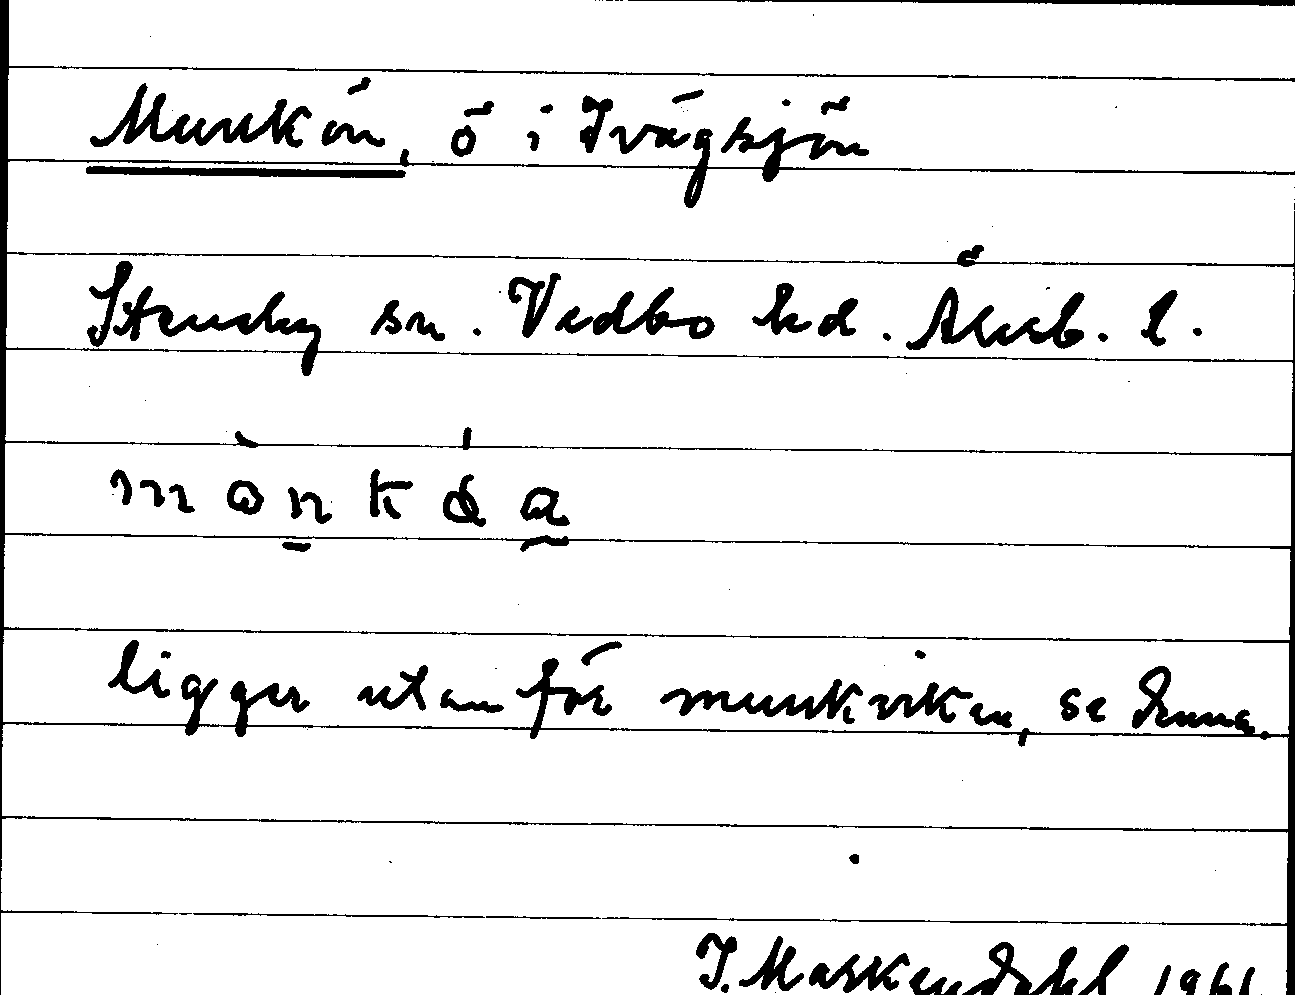 Munkön, ö i Ivägsjön
Steneby sn. Vedbo hd. Älvsb. l.
ligger utanför munkviken, se denna.
J. Maskendahl 1961